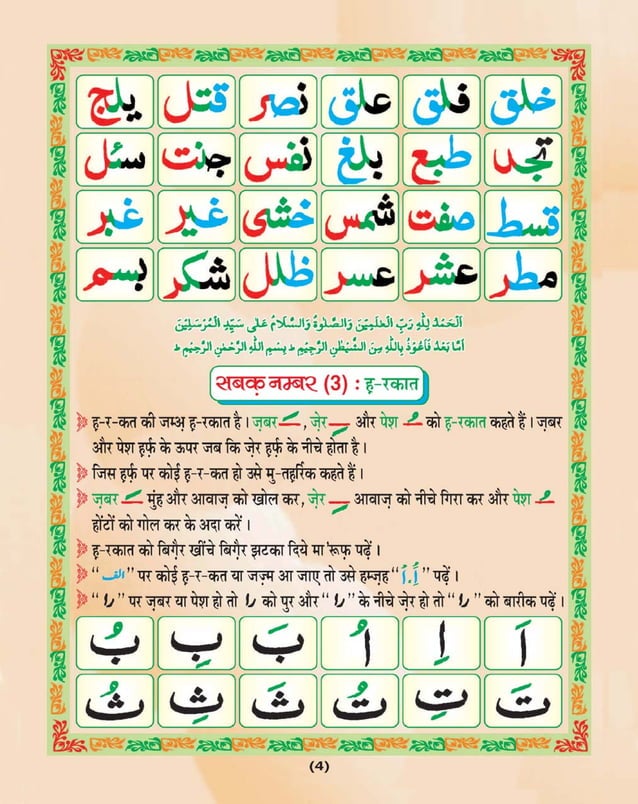 خلق فلق علق نصر قتل يلج
تجد طبع بلغ نفس جنت سئل
قسط صفت شمس خشى غير غبر
مطر عشر عسر ظلل شكر بسم
اَلْحَمْدُ لِلّٰهِ رَبِّ الْعٰلَمِيْنَ وَالصَّلٰوةُ وَالسَّلَامُ عَلٰى سَيِّدِ الْمُرْسَلِيْنَ
اَمَّا بَعْدُ فَاَعُوْذُ بِاللّٰهِ مِنَ الشَّيْطٰنِ الرَّجِيْمِ ط بِسْمِ اللّٰهِ الرَّحْمٰنِ الرَّحِيْمِ ط
सबक़ नम्बर (3) : ह़-रकात
ह़-र-कत की जम्अ़ ह़-रकात है। ज़बर ـَ , ज़ेर ـِ और पेश ـُ को ह़-रकात कहते हैं। ज़बर
और पेश ह़र्फ़ के ऊपर जब कि ज़ेर ह़र्फ़ के नीचे होता है।
जिस ह़र्फ़ पर कोई ह़-र-कत हो उसे मु-तह़र्रिक कहते हैं।
ज़बर ـَ मुंह और आवाज़ को खोल कर, ज़ेर ـِ आवाज़ को नीचे गिरा कर और पेश ـُ
होंटों को गोल कर के अदा करें।
ह़-रकात को बिग़ैर खींचे बिग़ैर झटका दिये मा'रूफ़ पढ़ें।
“ الف ” पर कोई ह़-र-कत या जज़्म आ जाए तो उसे हम्ज़ह “ أَ,أُ ” पढ़ें।
“ را ” पर ज़बर या पेश हो तो را को पुर और “ را ” के नीचे ज़ेर हो तो “ را ” को बारीक पढ़ें।
اَ اِ اُ بَ بِ بُ
تَ تِ تُ ثَ ثِ ثُ
(4)